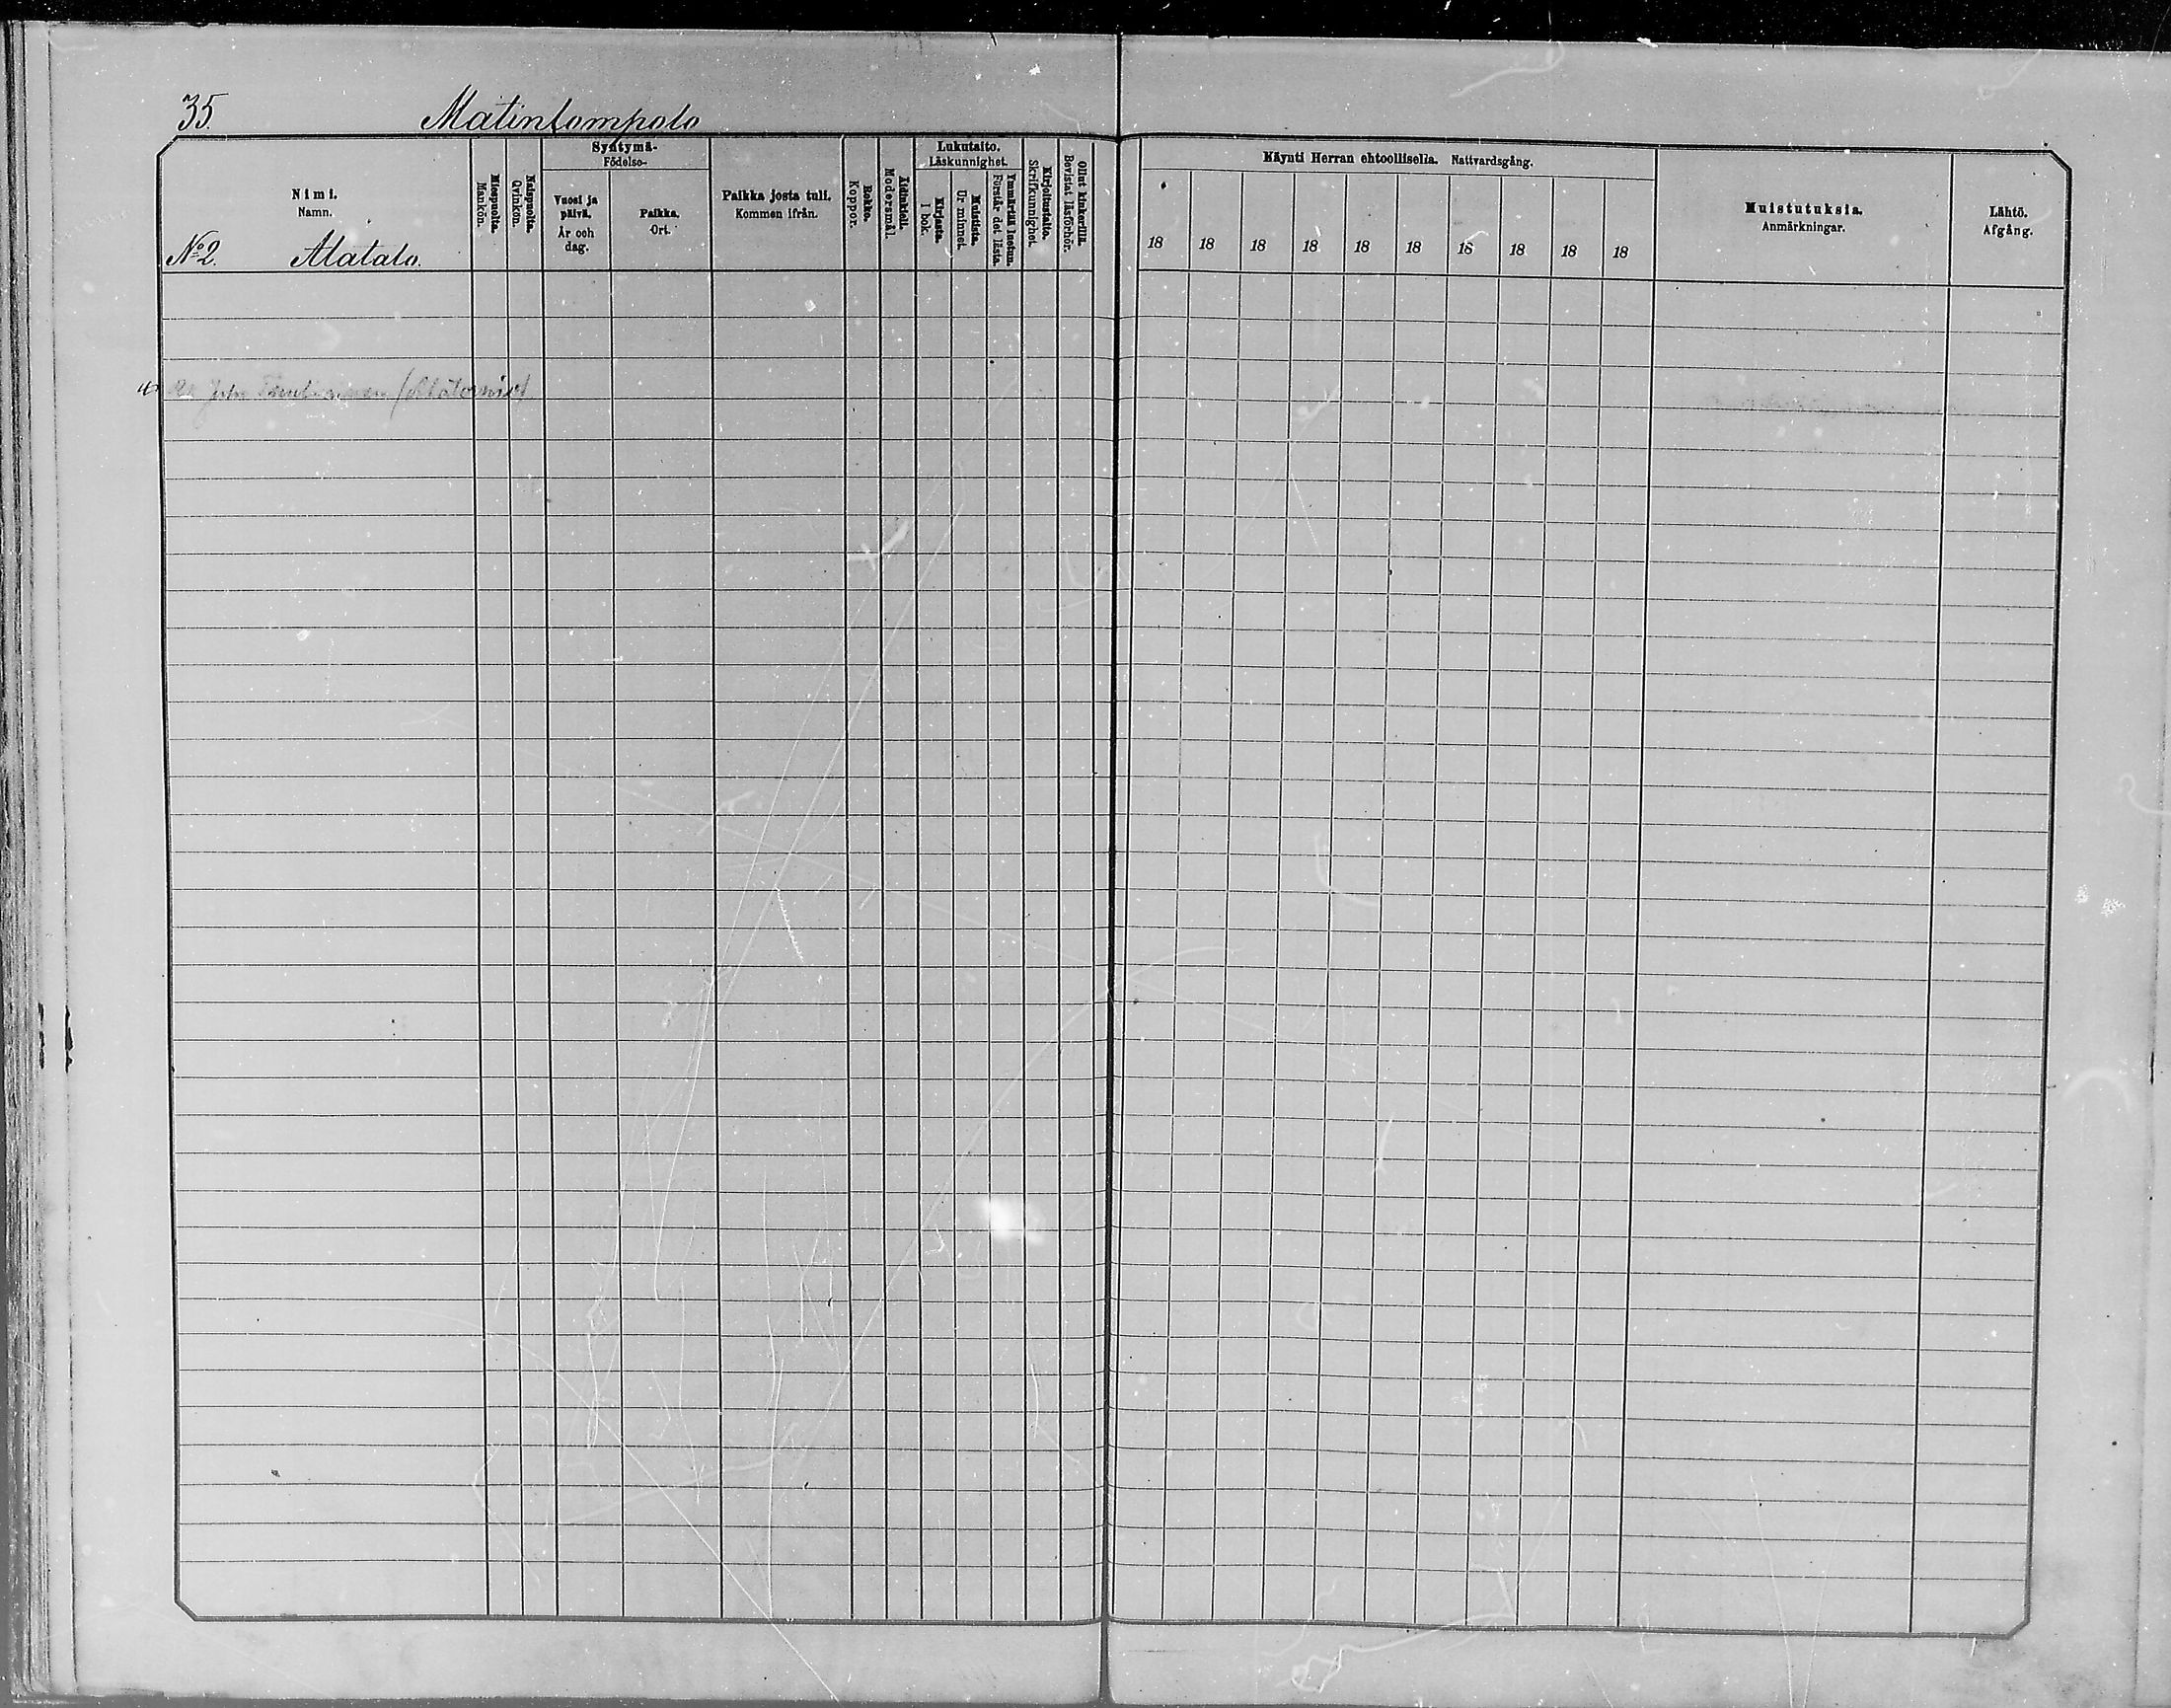 35. Matinlompolo
Nimi.
Namn.
No 2. Alatalo.
Miespuolta.
Mankön.
Naispuolta.
Qvinkön.
Syntymä-
Födelse-
Vuosi ja päivä.
År och dag.
Paikka.
Ort.
Paikka josta tuli.
Kommen ifrån.
Rokko.
Koppor.
Äidinkieli.
Modersmål.
Lukutaito.
Läskunnighet.
Kirjasta.
I bok.
Muistista.
Ur minnet.
Ymmärtää luetun.
Förstår det lästa.
Kirjoitustaito.
Skrifkunnighet.
Ollut kinkerillä.
Bevistat läsförhör.
Käynti Herran ehtoollisella. Nattvardsgång.
18 18 18 18 18 18 18 18 18 18
Muistutuksia.
Anmärkningar.
Lähtö.
Afgång.